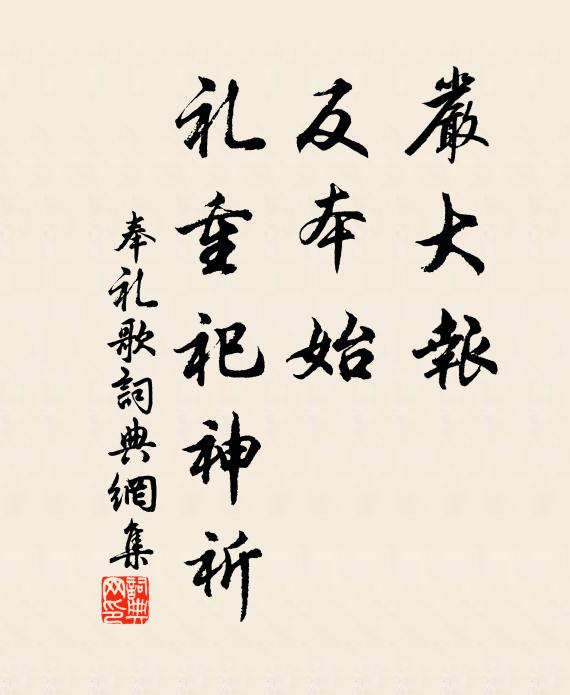 嚴大報
反本始
礼重祀神祈
奉礼歌詞典網集
詞典网印